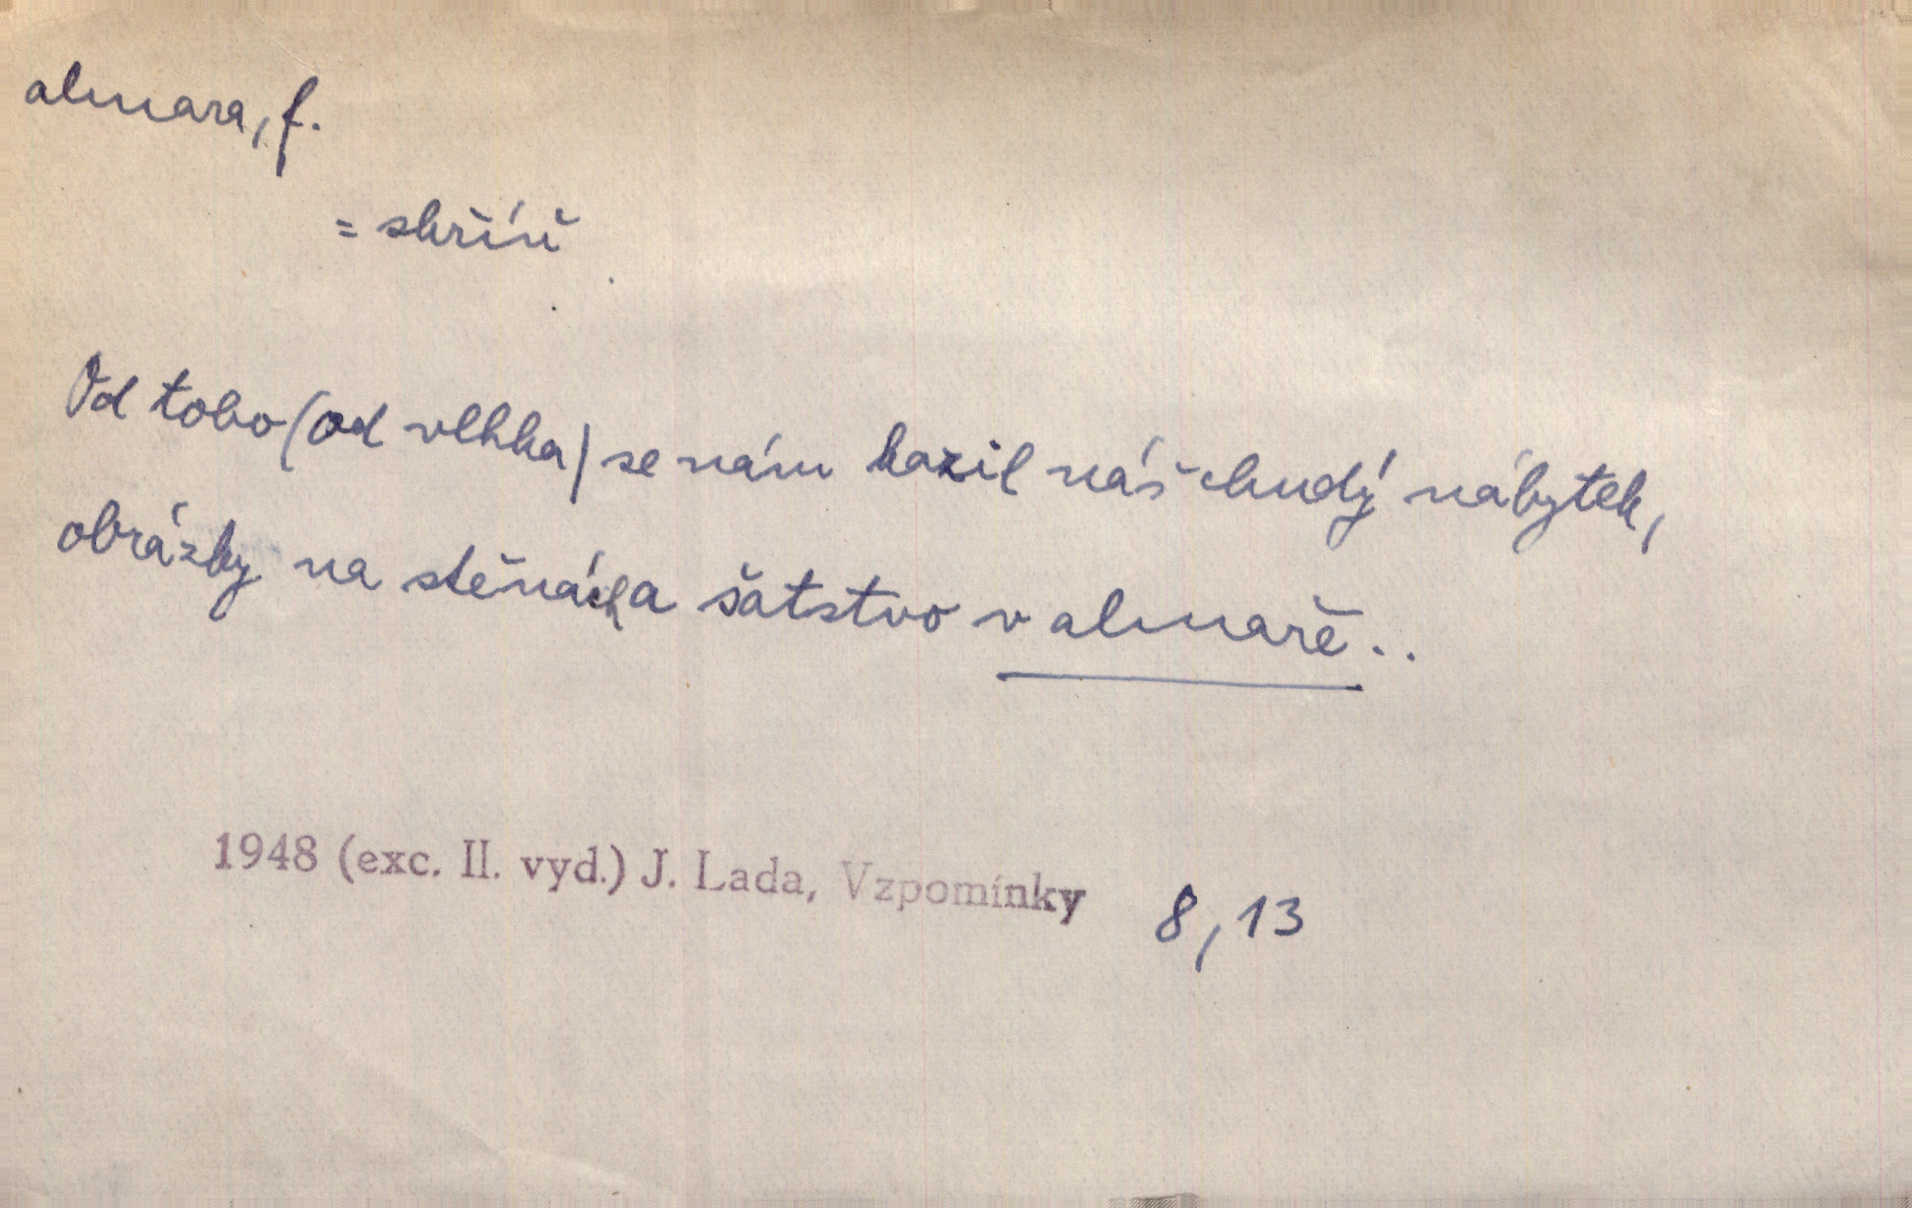 almara, f.
= skříň
Od toho (od vlhka) se nám kazil náš chudý nábytek,
obrázky na stěnách a šatstvo v almaře..
1948 (exc. II. vyd.) J. Lada, Vzpomínky 8,13